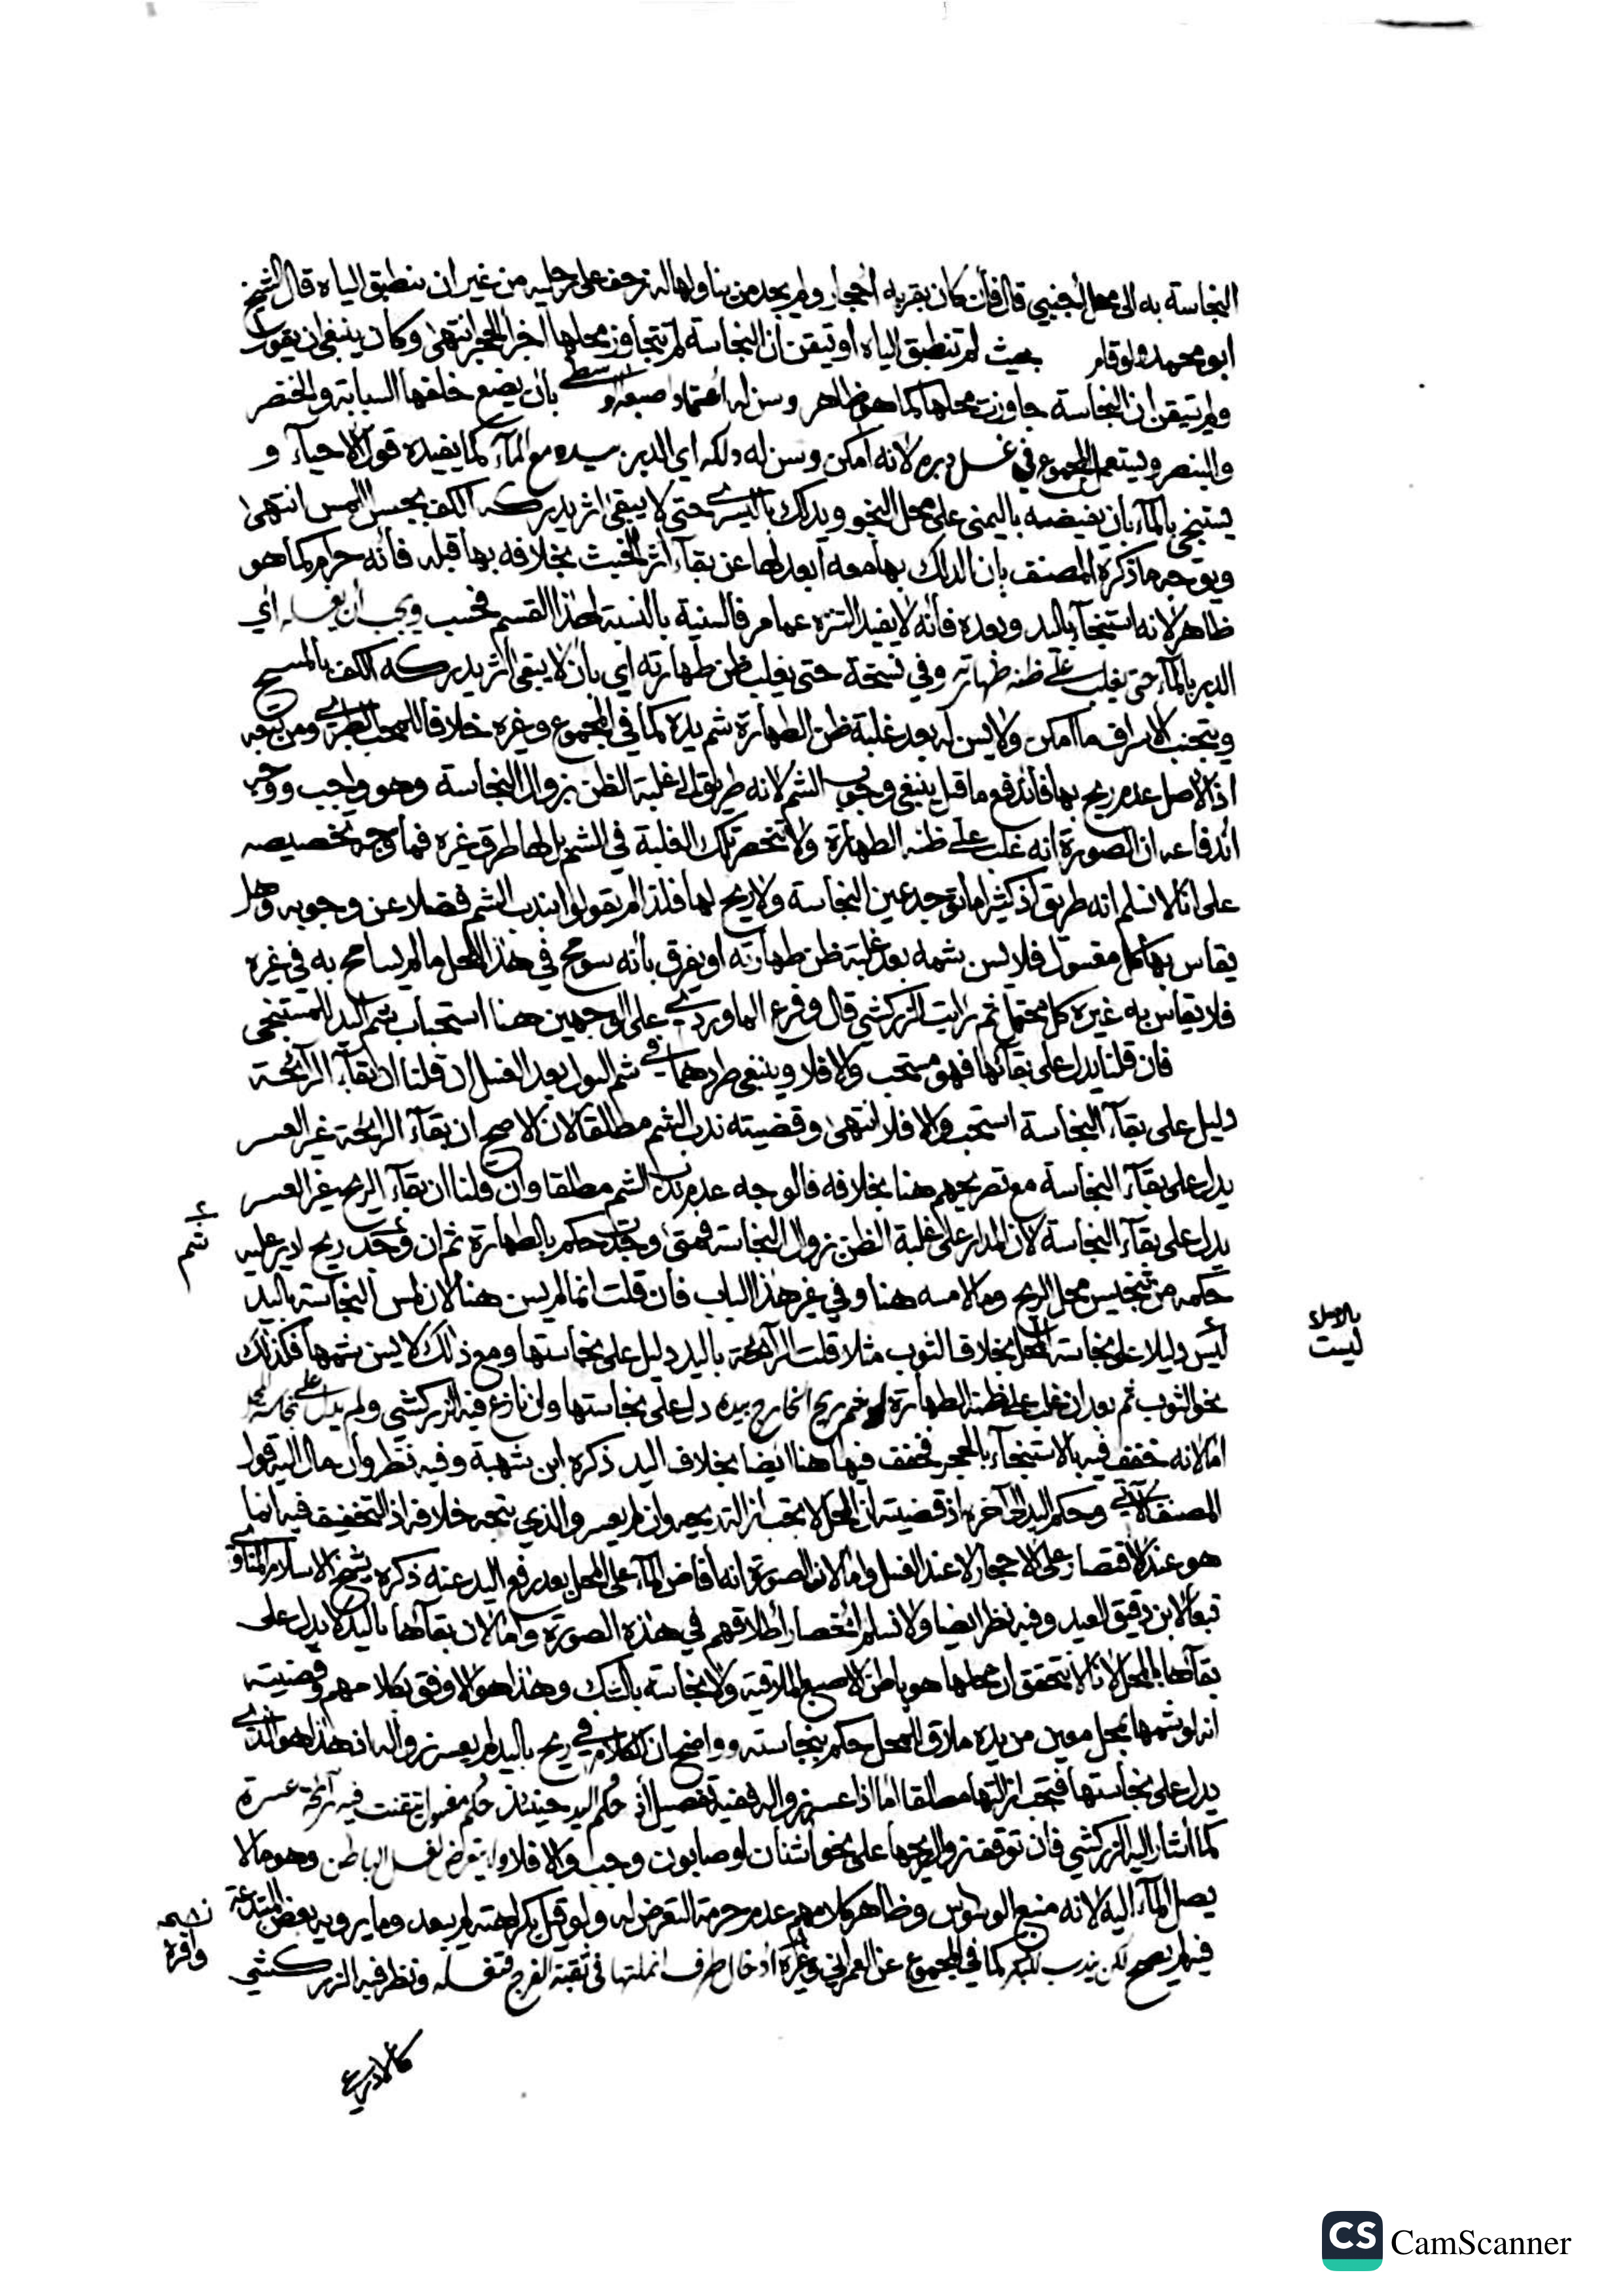 النجاسة به الى محل اجنبي قال فان كان بقربه احجار ولم يجد من يناولها له زحف على رجليه من غير ان ينطبق الياه قال الشيخ
ابو محمد ولو قام بحيث لم تنطبق الياه او تيقن ان النجاسة لم تتجاوز محلها اخر الحجر انتهى وكان ينبغي ان يقول
ولم يتيقن ان النجاسة جاوزت محلها كما هو ظاهر وسن له اعتماد اصبعه الوسطى بان يضع خلفها السبابة والخنصر
والبنصر ويستعمل المجموع في غسل دبره لانه امكن وسن له دلكه اي الدبر بيده مع المآء كما يفيده قول الاحيآء و
يستنجي بالمآء بان يفيضه باليمنى على محل النجو ويدلك باليسرى حتى لا يبقى اثر يدركه الكف بحس اللمس انتهى
ويوجه ما ذكره المصنف بان الدلك بها معه ابعد لها عن بقآء اثر الخبث بخلافه بها قبله فانه حرام كما هو
ظاهر لانه استنجآء باليد وبعده فانه لا يفيد التنزه عما مر فالسنية بالنسبة لهذا القسم فحسب ويجب ان يغسله اي
الدبر بالمآء حتى يغلب على ظنه طهارته وفي نسخة حتى يغلب ظن طهارته اي بان لا يبقى اثر يدركه الكف بالمسح
ويتجنب الاسراف ما امكن ولا يسن له بعد غلبة ظن الطهارة شم يده كما في المجموع وغيره خلافا للمحب الطبري ومن تبعه
اذ الاصل عدم ريح بها فاندفع ما قيل ينبغي وجوب الشم لانه طريق الى غلبة الظن بزوال النجاسة وهو واجب ووجه
اندفاعه ان الصورة انه غلب على ظنه الطهارة ولا تنحصر تلك الغلبة في الشم بل لها طرق غيره فما وجه تخصيصه
على انا لا نسلم انه طريق اذ كثيرا ما توجد عين النجاسة ولا ريح لها فلذا لم يقولوا بندب الشم فضلا عن وجوبه وهل
يقاس بها كل مغسول فلا يسن شمه بعد غلبة ظن طهارته او يفرق بانه سومح في هذا المحل ما لم يسامح به في غيره
فلا يقاس به غيره كل محتمل ثم رايت الزركشي قال وفرع الماوردي على الوجهين هنا استحباب شم اليد للمستنجي
فان قلنا يدل على بقائها فهو مستحب والا فلا وينبغي طردهما في شم البول بعد الغسل ان قلنا ان بقآء الرآئحة
دليل على بقآء النجاسة استحب والا فلا انتهى وقضيته ندب الشم مطلقا لان الاصح ان بقآء الرايحة غير العسر
يدل على بقآء النجاسة مع تصريحهم هنا بخلافه فالوجه عدم ندب الشم مطلقا وان قلنا ان بقآء الريح غير العسر
يدل على بقآء النجاسة لان المدار على غلبة الظن بزوال النجاسة فمتى وجدت حكم بالطهارة ثم ان وجد ريح ادير عليه
شم
حكمه من تنجيس محل الريح وملامسه هنا وفي غير هذا الباب فان قلت انما لم يسن هنا لان لمس النجاسة باليد
بالاصل
ليست
ليس دليلا على نجاسة المحل بخلاف الثوب مثلا قلت الرآئحة باليد دليل على نجاستها ومع ذلك لا يسن شمها فكذلك
نحو الثوب ثم بعد ان غلب على ظنه الطهارة لو شم ريح الخارج بيده دل على نجاستها وان نازع فيه الزركشي ولم يدل على نجاسة المحل
اما لانه خفف فيه بالاستنجآء بالحجر فخفف فيها هنا ايضا بخلاف اليد ذكره ابن شهبة وفيه نظر وان مال اليه قول
المصنف الآتي وحكم اليد الى آخره اذ قضيته ان المحل لا تجب ازالته ريحه وان لم يعسر والذي يتجه خلافه اذ التخفيف فيه انما
هو عند الاقتصار على الاحجار لا عند الغسل واما لان الصورة انه افاض المآء على المحل بعد رفع اليد عنه ذكره شيخ الاسلام المناوي
تبعا لابن دقيق العيد وفيه نظر ايضا ولا نسلم انحصار اطلاقهم في هذه الصورة واما لان بقآءها باليد لا يدل على
بقآءها بالمحل لانا لا نتحقق ان محلها هو باطن الاصبع الملاقيه ولا نجاسة بالشك وهذا هو الاوفق بكلامهم وقضيته
انه لو شمها بمحل معين من يده ملاق المحل حكم بنجاسته وواضح ان الكلام في ريح باليد لم يعسر زواله اذ هذا هو الذي
يدل على نجاستها فتجب ازالتها مطلقا اما اذا عسر زواله ففيه تفصيل اذ حكم اليد حينئذ حكم مغسول تيقنت فيه رآئحة عسرة
كما اشار اليه الزركشي فان توقف زوال ريحها على نحو اشنان او صابون وجب والا فلا ولا يتعرض لغسل الباطن وهو ما لا
يصل المآء اليه لانه منبع الوسواس وظاهر كلامهم عدم حرمة التعرض له ولو قيل بكراهته لم يبعد وما يرويه بعض المبتدعة
نسخة
وافرة
فيه لم يصح لكن يندب للبكر كما في المجموع عن العمراني وغيره ادخال طرف انملتها في ثقبة الفرج فتغسله ونظر فيه الزركشي
كالاذرعي
CS CamScanner